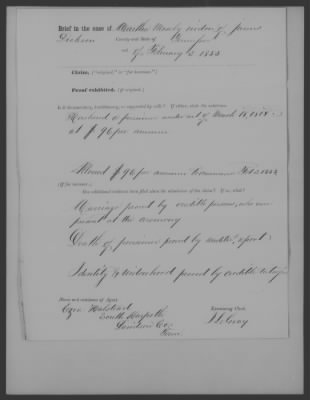 Brief in the case of Martha Neely widow of James
Dickson County and State of Tennessee
Act of February 3 1853
Claim, ("original," or "for increase.")
Proof exhibited, (if original.)
Is it documentary, traditionary, or supported by rolls? If either, state the substance.
Husband a pensioner under act of March 18, 1818
at $96 per annum
Allowed $96 per annum to commence Feb 3 1853
(If for increase.)
Has additional evidence been filed since the admission of the claim? If so, what?
Marriage proved by credible persons, who were
present at the ceremony
Death of pensioner proved by
Identity & widowhood proved by credible
Name and residence of Agent.
Ezra Halstead
South Harpeth
Davidson Co.
Tenn.
Examining Clerk.